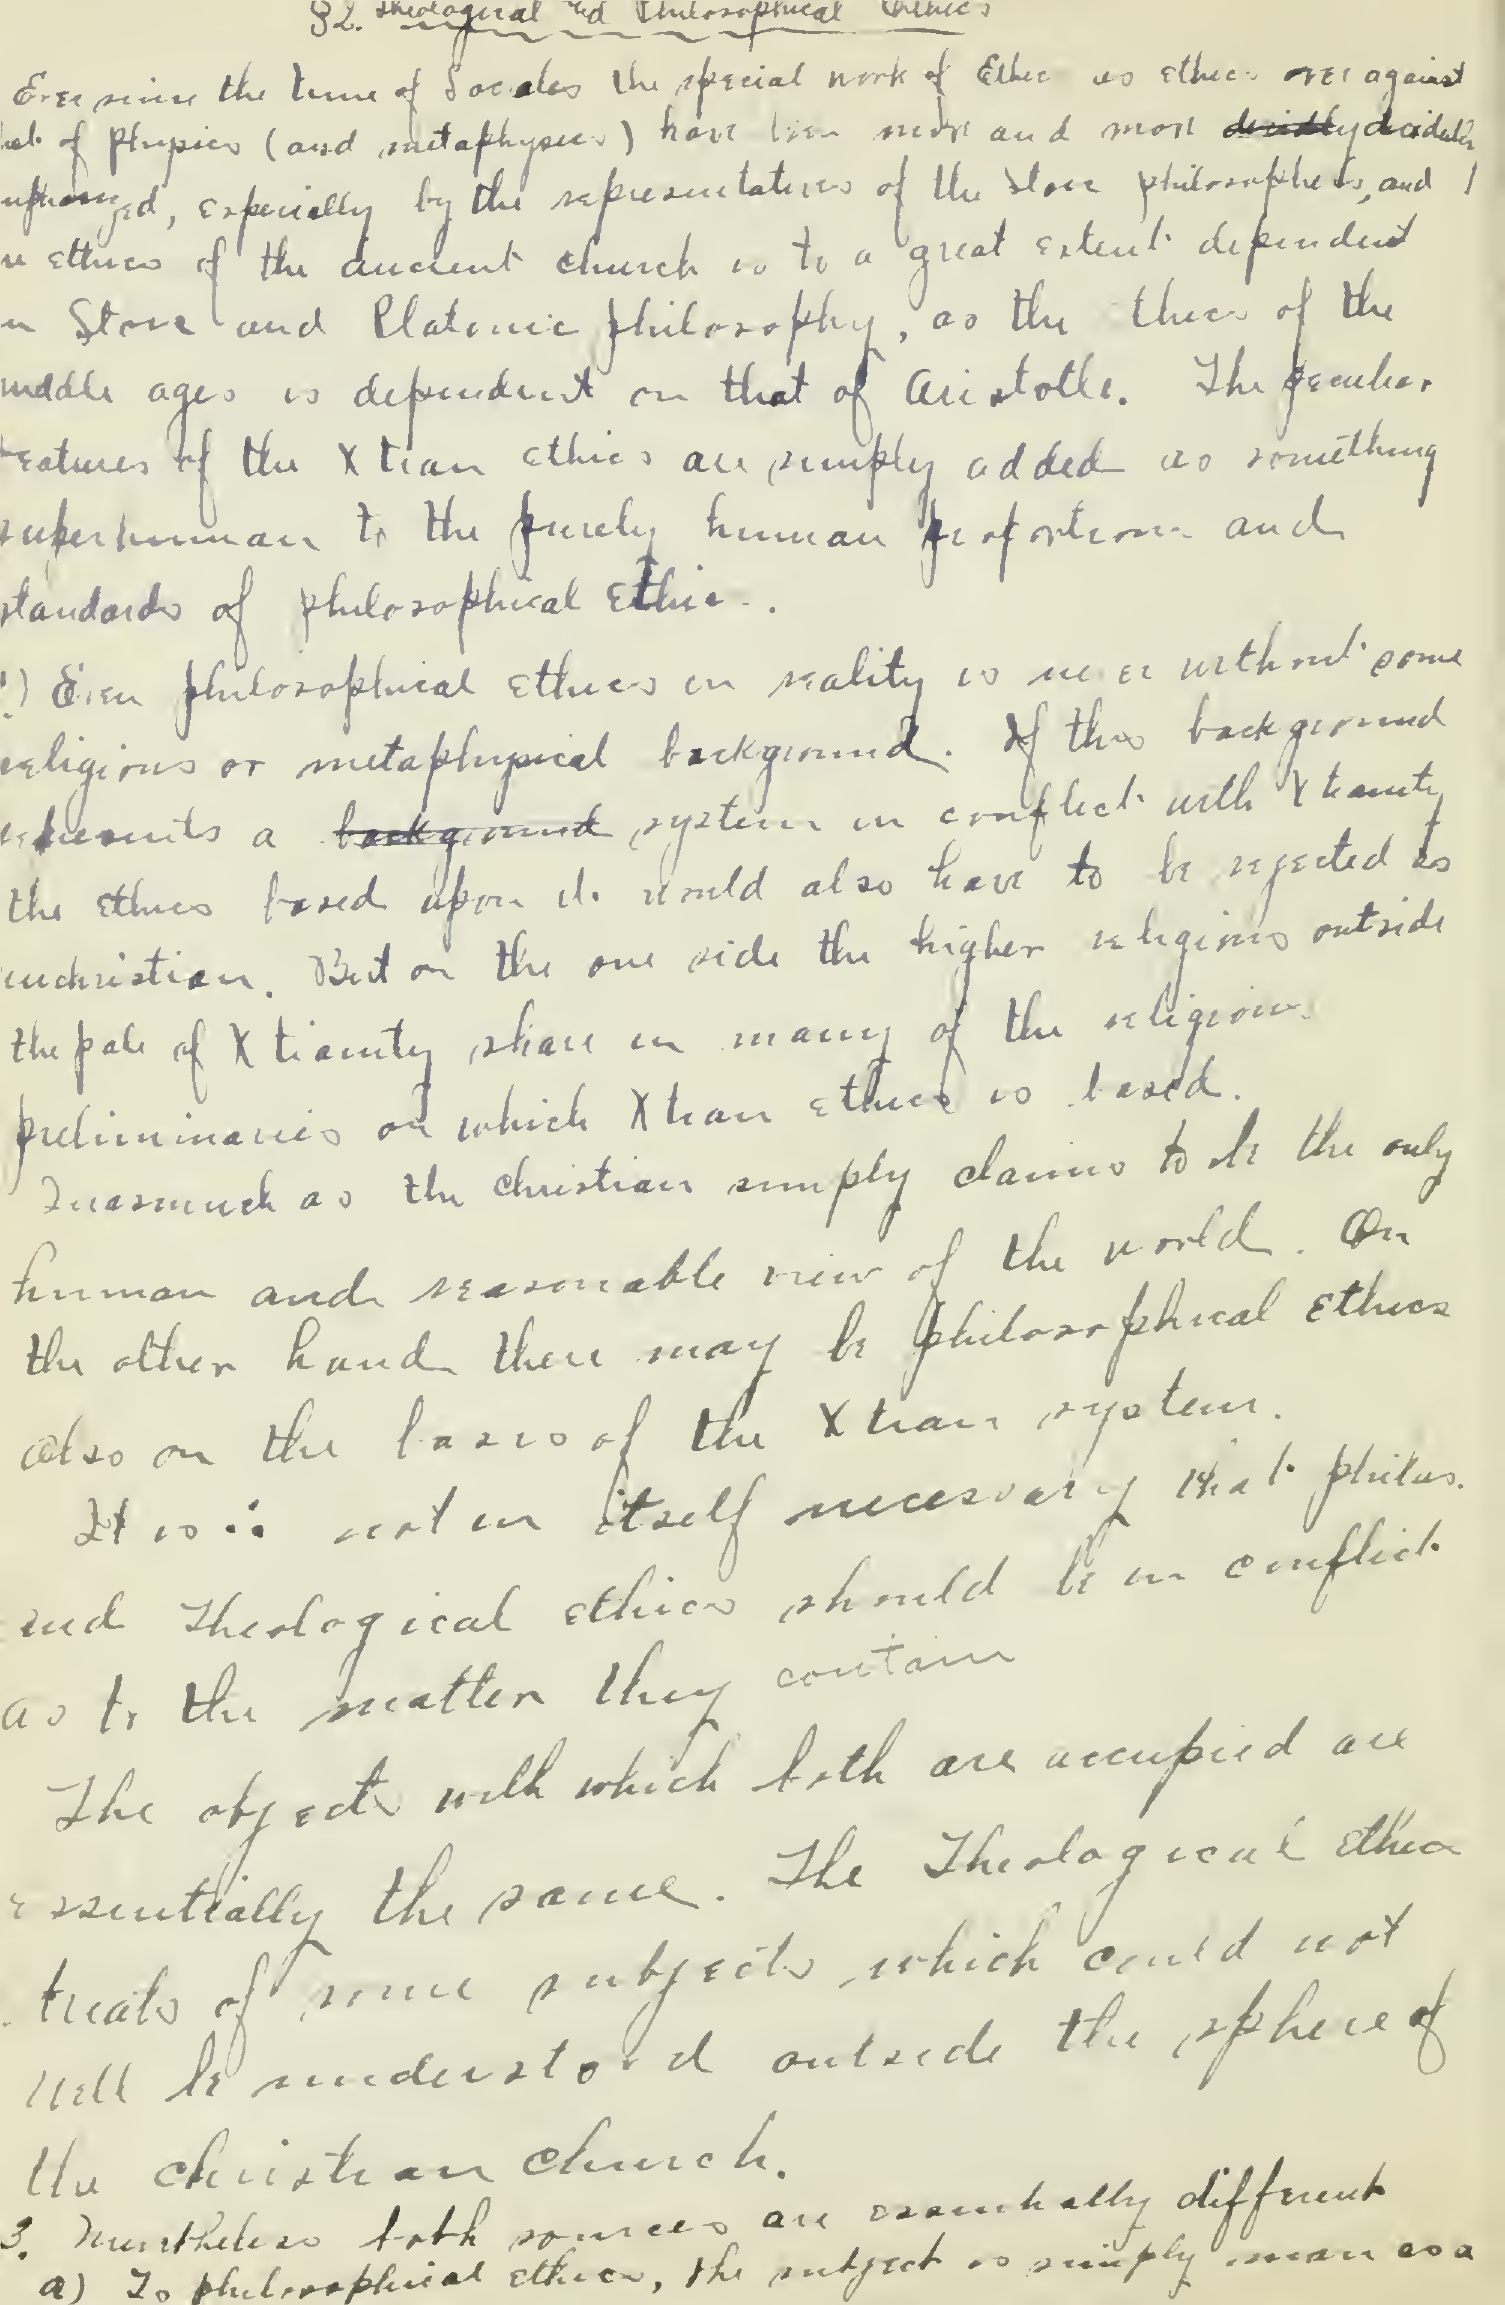 §2. Theological and Philosophical Ethics
Ever since the time of Socrates the special work of Ethic as ethics over against
that of Physics (and metaphysics) have been more and more decidedly decidedly
emphasized, especially by the representatives of the Stoic philosophers, and
ethics of the ancient church is to a great extent dependent
on Stoic and Platonic philosophy, as the thics of the
middle ages is dependent on that of Aristotle. The peculiar
features of the Xtian ethics are simply added as something
superhuman to the purely human proportions and
standards of philosophical Ethic.
Even philosophical Ethics in reality is never without some
religious or metaphysical background. If this background
represents a background system in conflict with Xtianity
the ethics based upon it would also have to be rejected as
unchristian. But on the one side the higher religions outside
the pale of Xtianity share in many of the religious
preliminaries on which Xtian ethics is based.
Inasmuch as the Christian simply claims to be the only
human and reasonable view of the world. On
the other hand there may be philosophical ethics
also on the basis of the Xtian system.
It is not in itself necessary that philos.
and Theological ethics should be in conflict
as to the matter they contain
The objects with which both are occupied are
essentially the same. The Theological ethics
treats of some subjects which could not
well be understood outside the sphere of
the christian church.
3. Nevertheless both sources are essentially different
a) To philosophical ethics, the subject is simply man as a